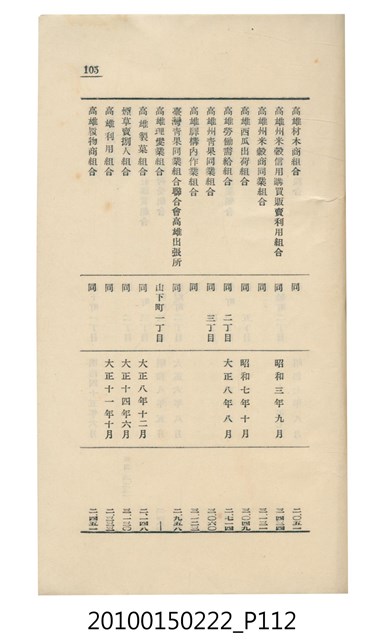 103
高雄材木商組合 同
高雄州米穀信用購買販賣利用組合 同 昭和三年九月
高雄州米穀商同業組合 同
高雄西瓜出荷組合 同 昭和七年十月
高雄勞働需給組合 同 二丁目 大正八年八月
高雄州青果同業組合 同 三丁目
高雄驛構內作業組合 同
臺灣青果同業組合聯合會高雄出張所 同
高雄理髮業組合 山下町一丁目
高雄製菓組合 同 大正八年十二月
煙草賣捌人組合 同 大正十四年六月
高雄利用組合 同 大正十一年十月
高雄履物商組合 同
20100150222_P112